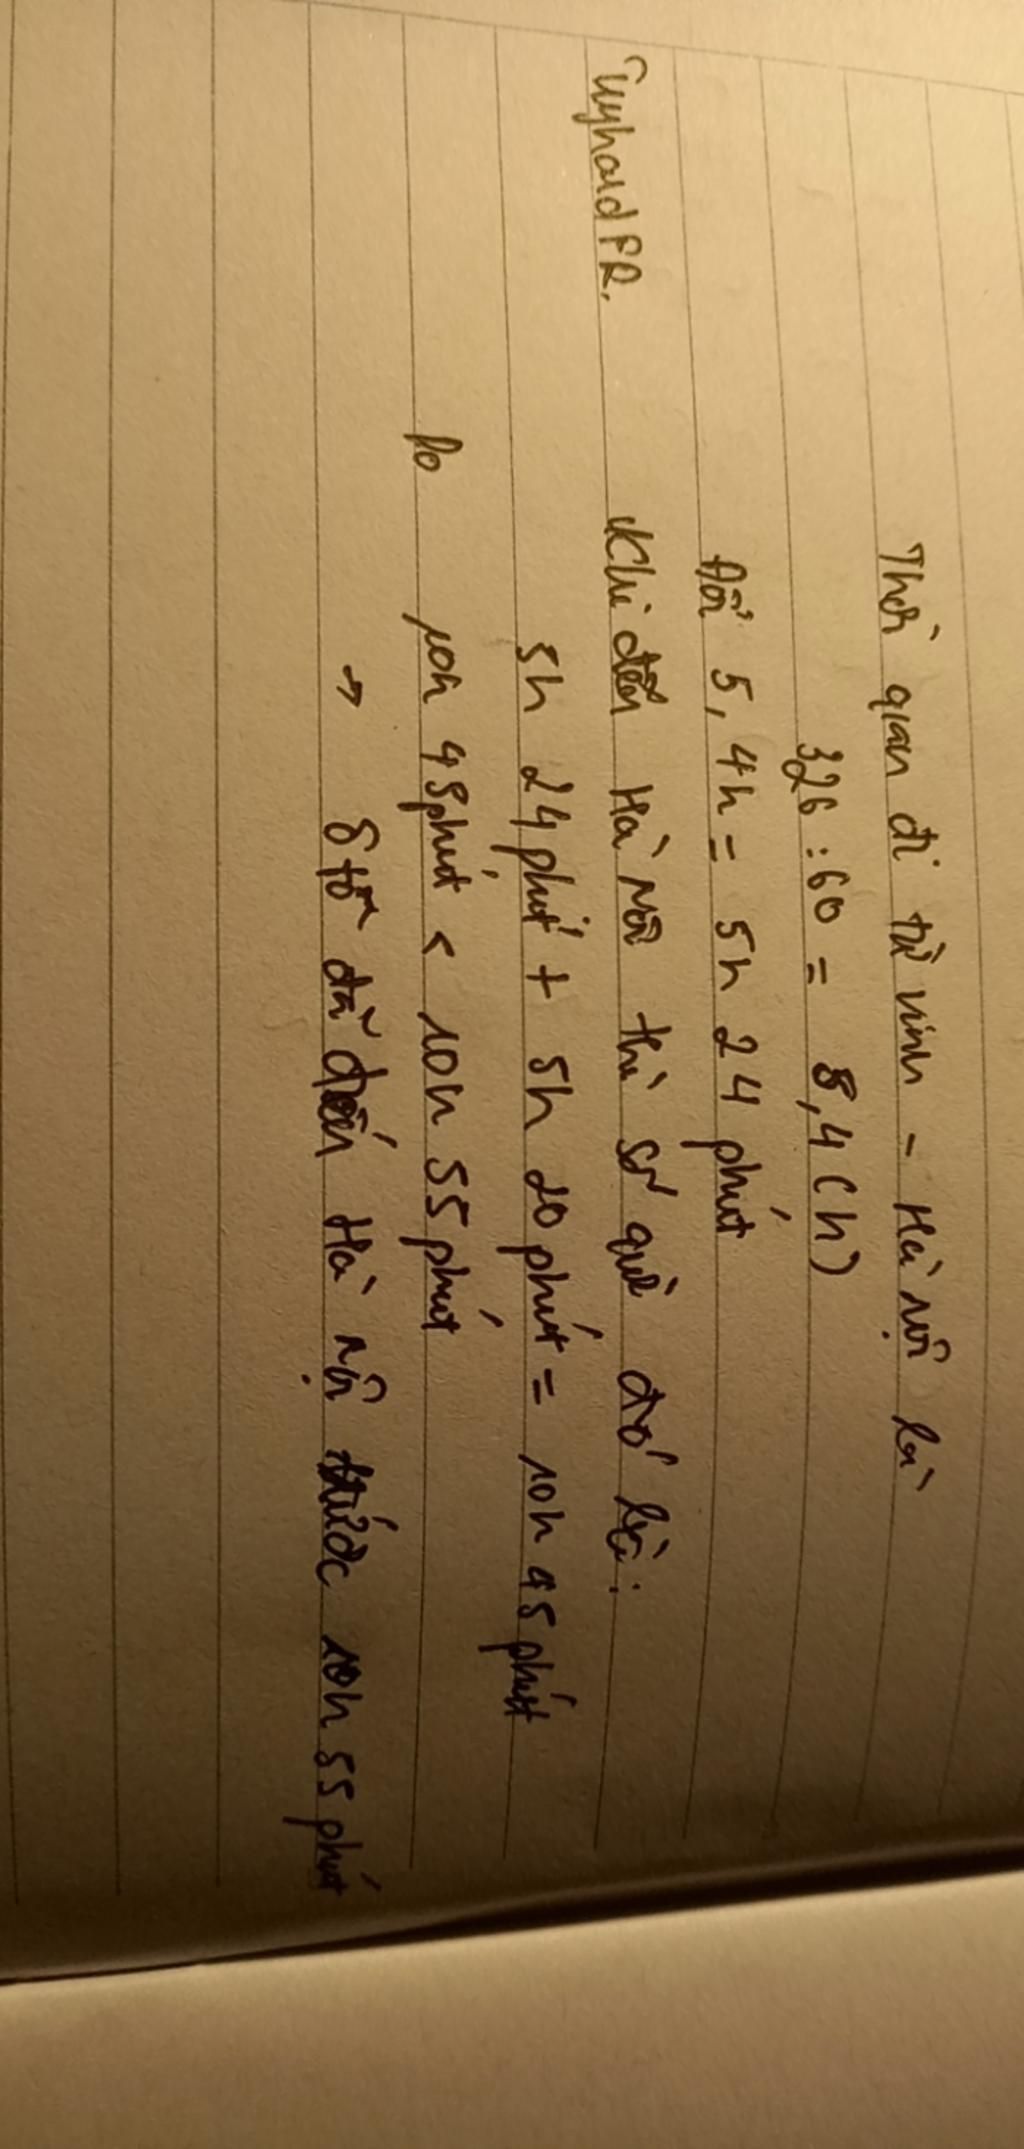 Thời gian đi từ vinh - Hà nội là
326 : 60 = 5,4 (h)
Đổi 5,4h = 5h 24 phút
Khi đến Hà Nội thì số quả đó là:
5h 24 phút + 5h 20 phút = 10h 45 phút
Do 10h 45 phút < 10h 55 phút
→ ô tô đã đến Hà nội trước 10h 55 phút